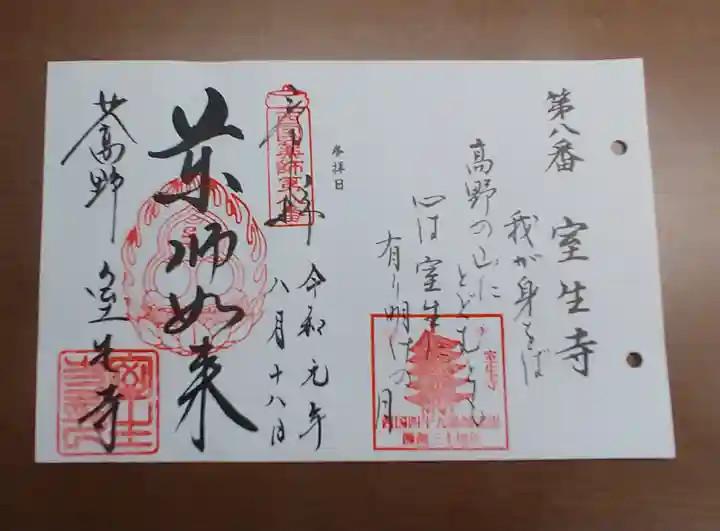 第八番 室生寺
我が身をば
高野の山に
とどむとも
心は室生に
有り明けの月
参拝日
奉拝
西国薬師第八番
令和元年
八月十八日
薬師如来
女高野 室生寺
室生寺